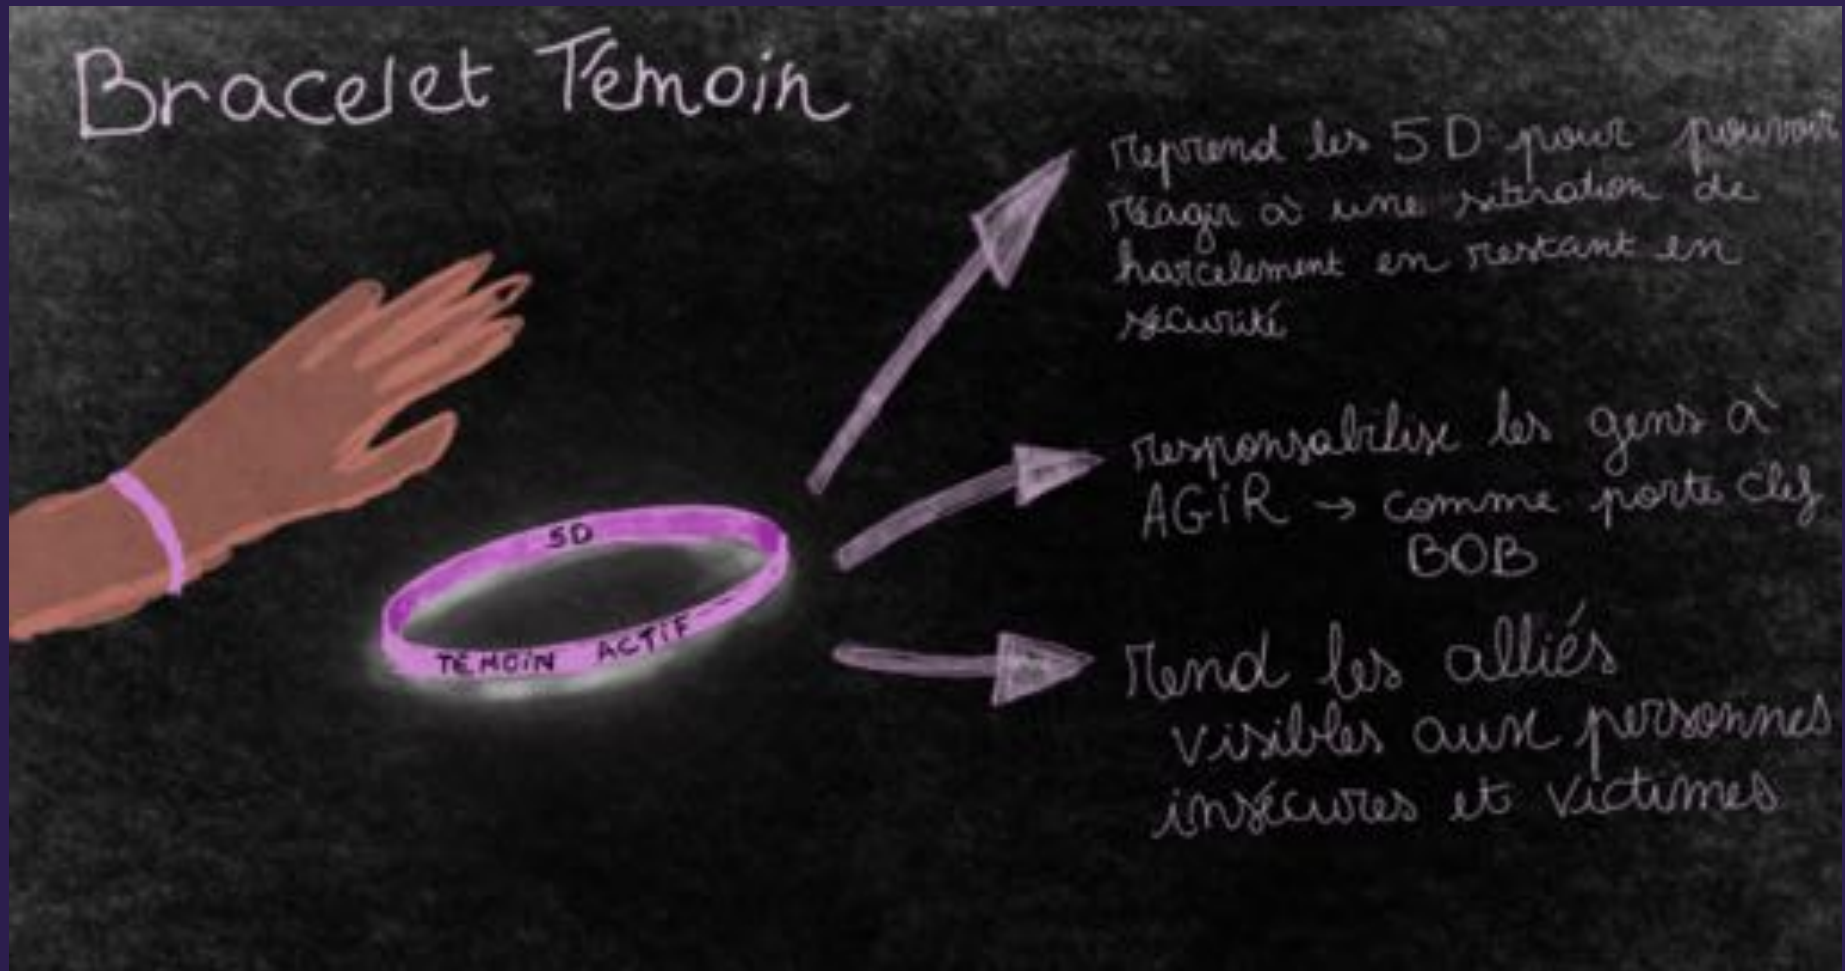 Bracelet Témoin
reprend les 5D pour pouvoir
réagir à une situation de
harcelement en restant en
sécurité
responsabilise les gens à
AGiR → comme porte clef
BOB
rend les alliés
visibles aux personnes
insécures et victimes
5D
TÉMOiN ACTiF